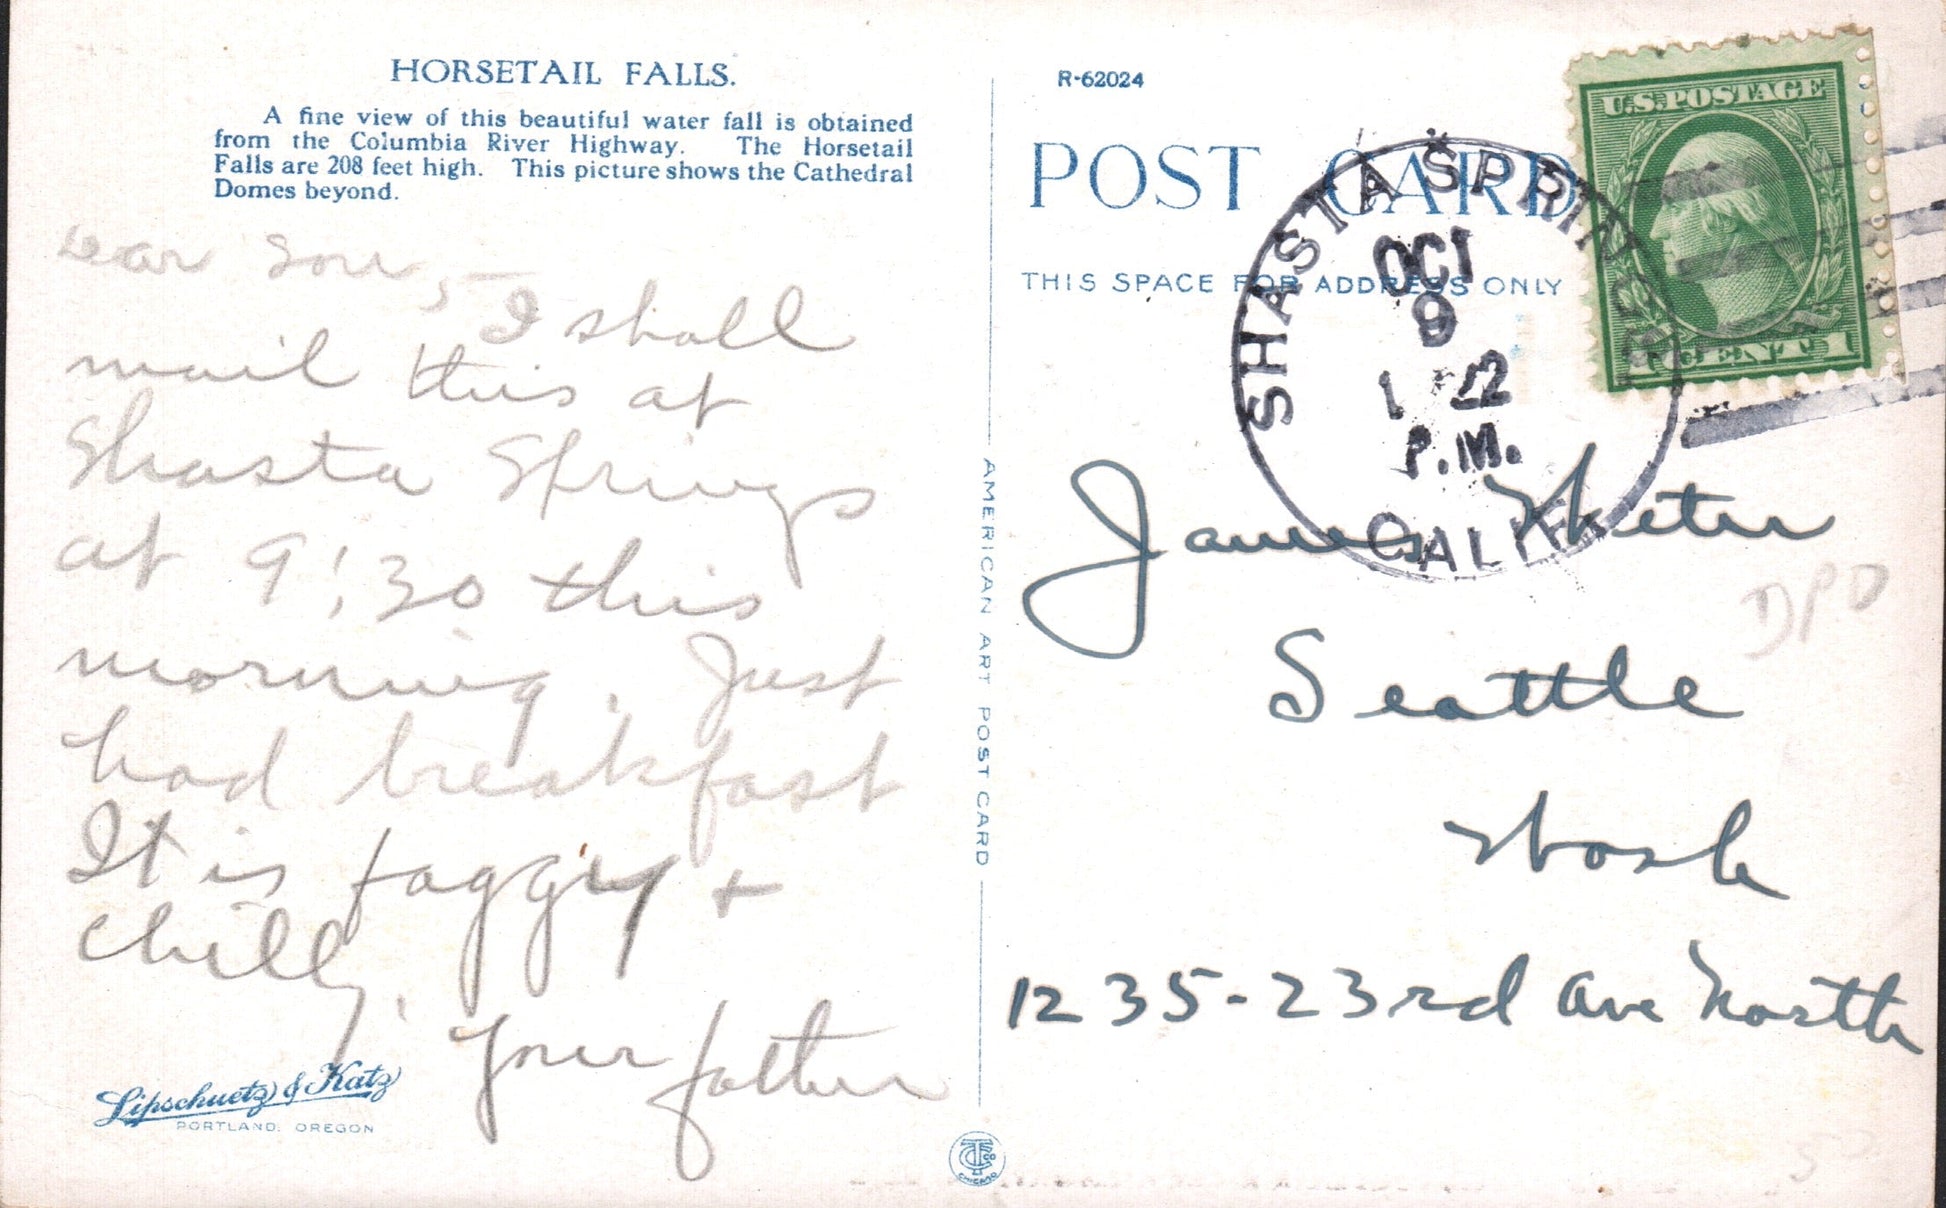 HORSETAIL FALLS.
A fine view of this beautiful water fall is obtained
from the Columbia River Highway. The Horsetail
Falls are 208 feet high. This picture shows the Cathedral
Domes beyond.
Dear Son, -
I shall
mail this at
Shasta Springs
at 9:30 this
morning. Just
had breakfast
It is foggy +
chilly.
Your father
Lipschuetz & Katz
PORTLAND, OREGON
AMERICAN ART POST CARD
R-62024
POST CARD
THIS SPACE FOR ADDRESS ONLY
U.S. POSTAGE
1 CENT 1
SHASTA SPRINGS
OCT
9
1 22
P.M.
CALIF.
James
Seattle
Wash
1235-23rd Ave North
DPO
CHICAGO